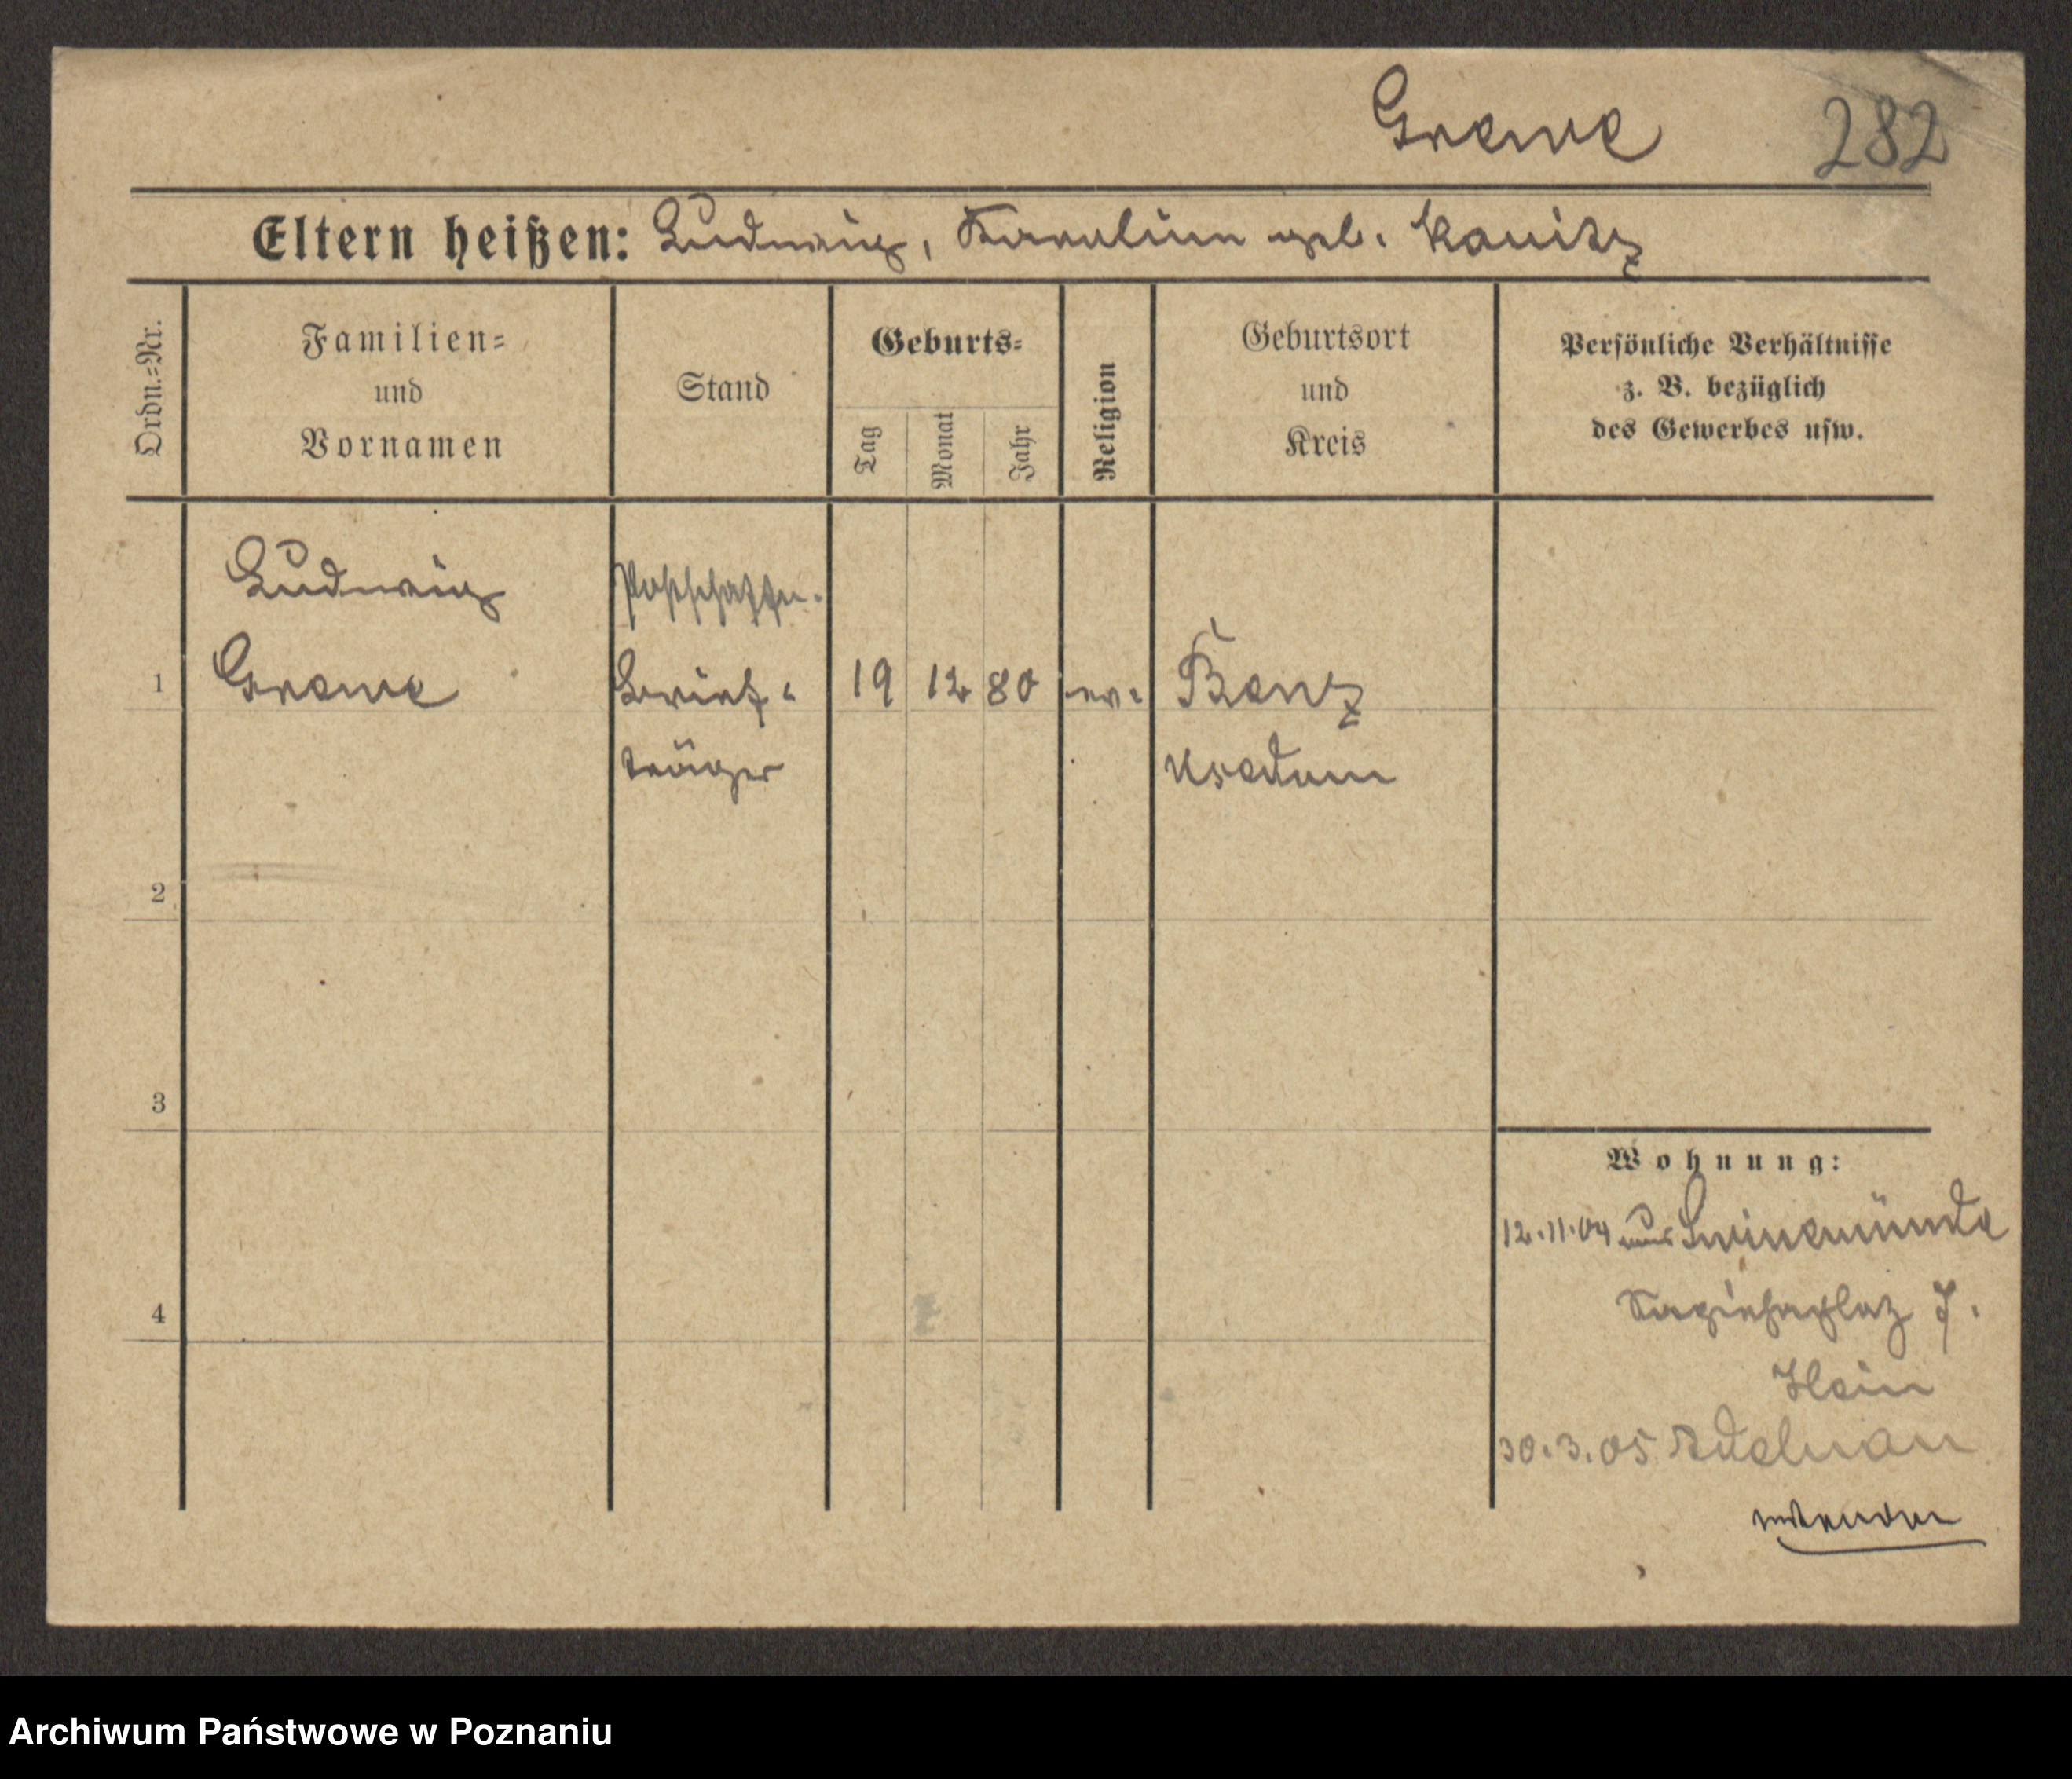 Grewe 282
Eltern heißen: Ludwig, Karoline geb. Kanitz
Ordn.-Nr.
Familien-
und
Vornamen
Stand
Geburts-
Tag
Monat
Jahr
Religion
Geburtsort
und
Kreis
Persönliche Verhältnisse
z. B. bezüglich
des Gewerbes usw.
Ludwig Postschaffn.
1 Grewe Brief- 19 12 80 ev. Benz
träger Usedom
2
3
4
Wohnung:
12.11.04 aus Swinemünde
Sapiehaplaz 7.
Hein
30.3.05
wenden
Archiwum Państwowe w Poznaniu